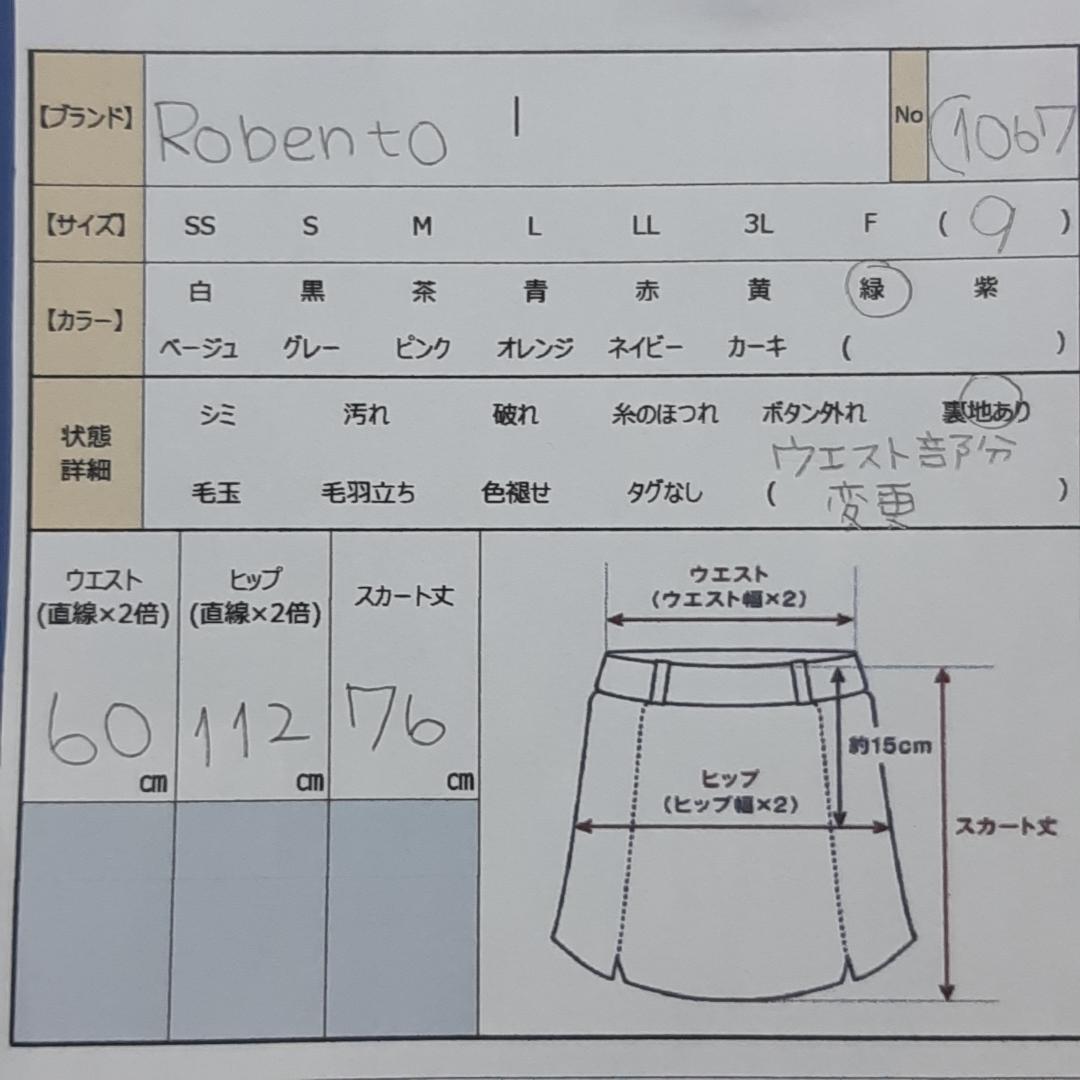 【ブランド】 Robento | No (1067
【サイズ】 SS S M L LL 3L F ( 9 )
【カラー】 白 黒 茶 青 赤 黄 緑 紫
ベージュ グレー ピンク オレンジ ネイビー カーキ ( )
状態
詳細
シミ 汚れ 破れ 糸のほつれ ボタン外れ 裏地あり
毛玉 毛羽立ち 色褪せ タグなし ( ウエスト部分
変更 )
ウエスト
(直線×2倍)
60
cm
ヒップ
(直線×2倍)
112
cm
スカート丈
76
cm
ウエスト
(ウエスト幅×2)
約15cm
ヒップ
(ヒップ幅×2)
スカート丈